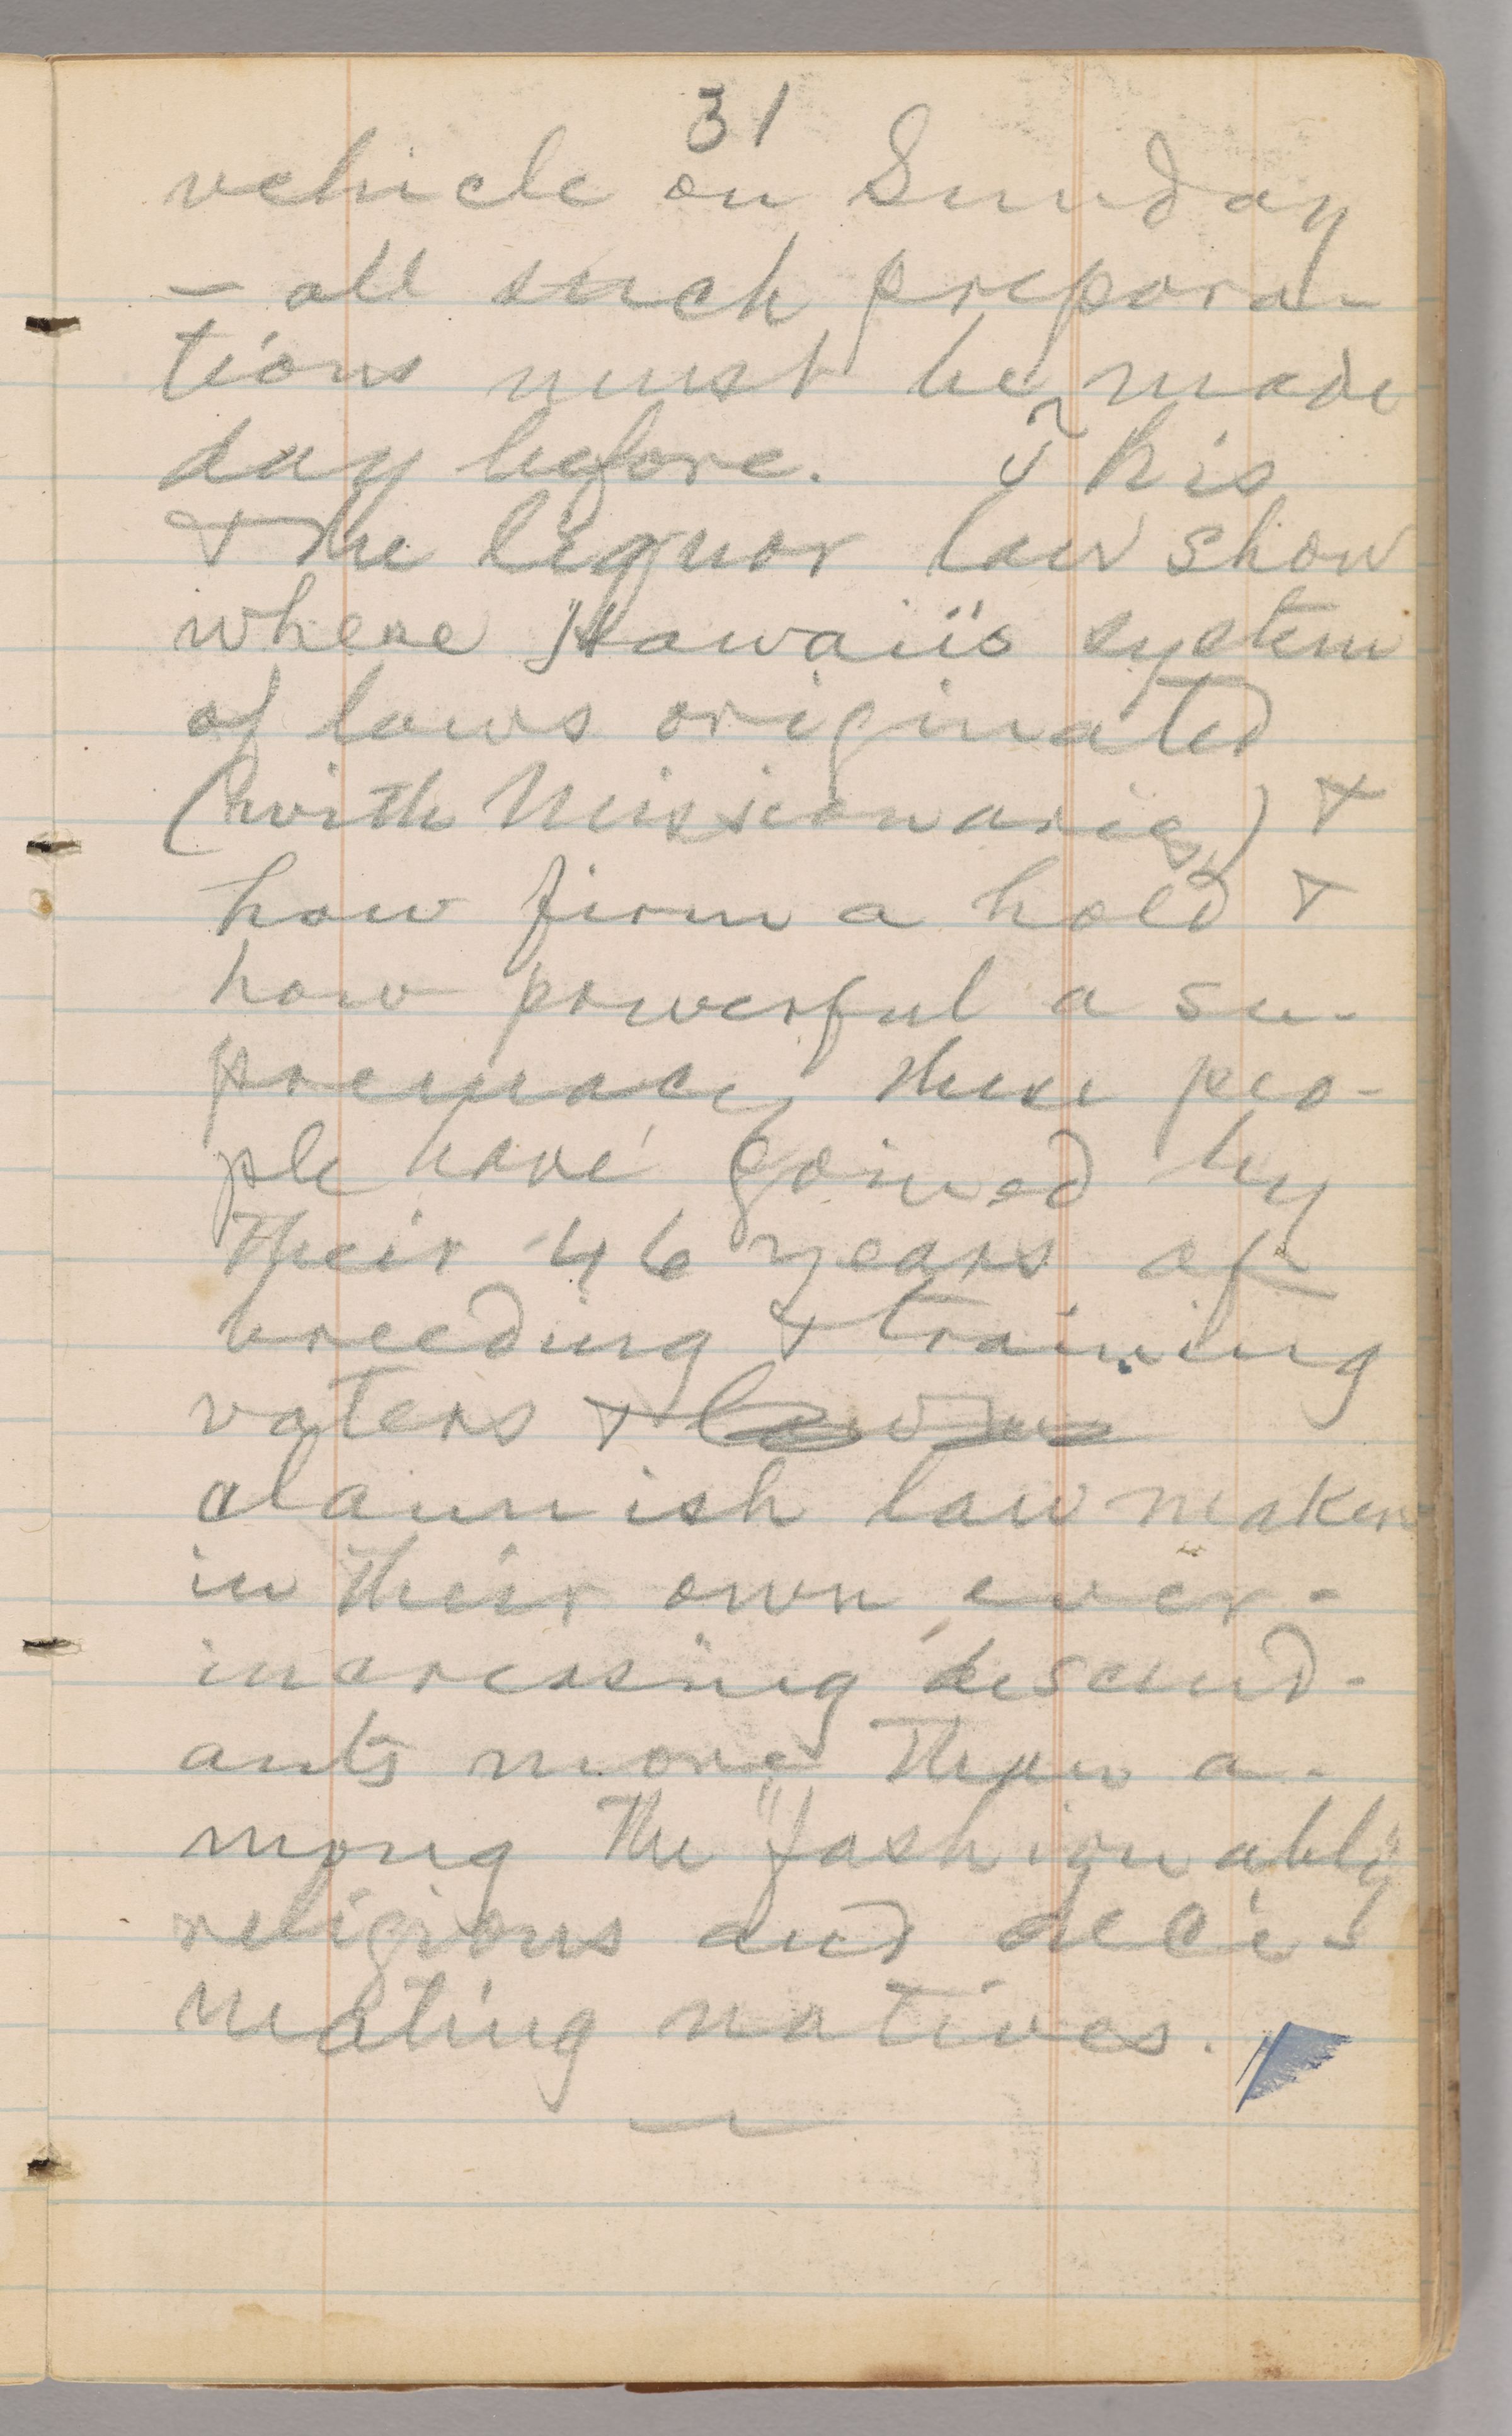 31
vehicle on Sunday
— all such prepara-
tions must be made
day before. This
& the liquor law show
where Hawaii's system
of laws originated
(with Missionaries) &
how firm a hold &
how powerful a su-
premacy these peo-
ple have gained by
their 46 years of
breeding & training
voters & law ma
clannish law makers
in their own ever-
increasing descend-
ants more than a-
mong the "fashionably"
religious and deci-
mating natives.